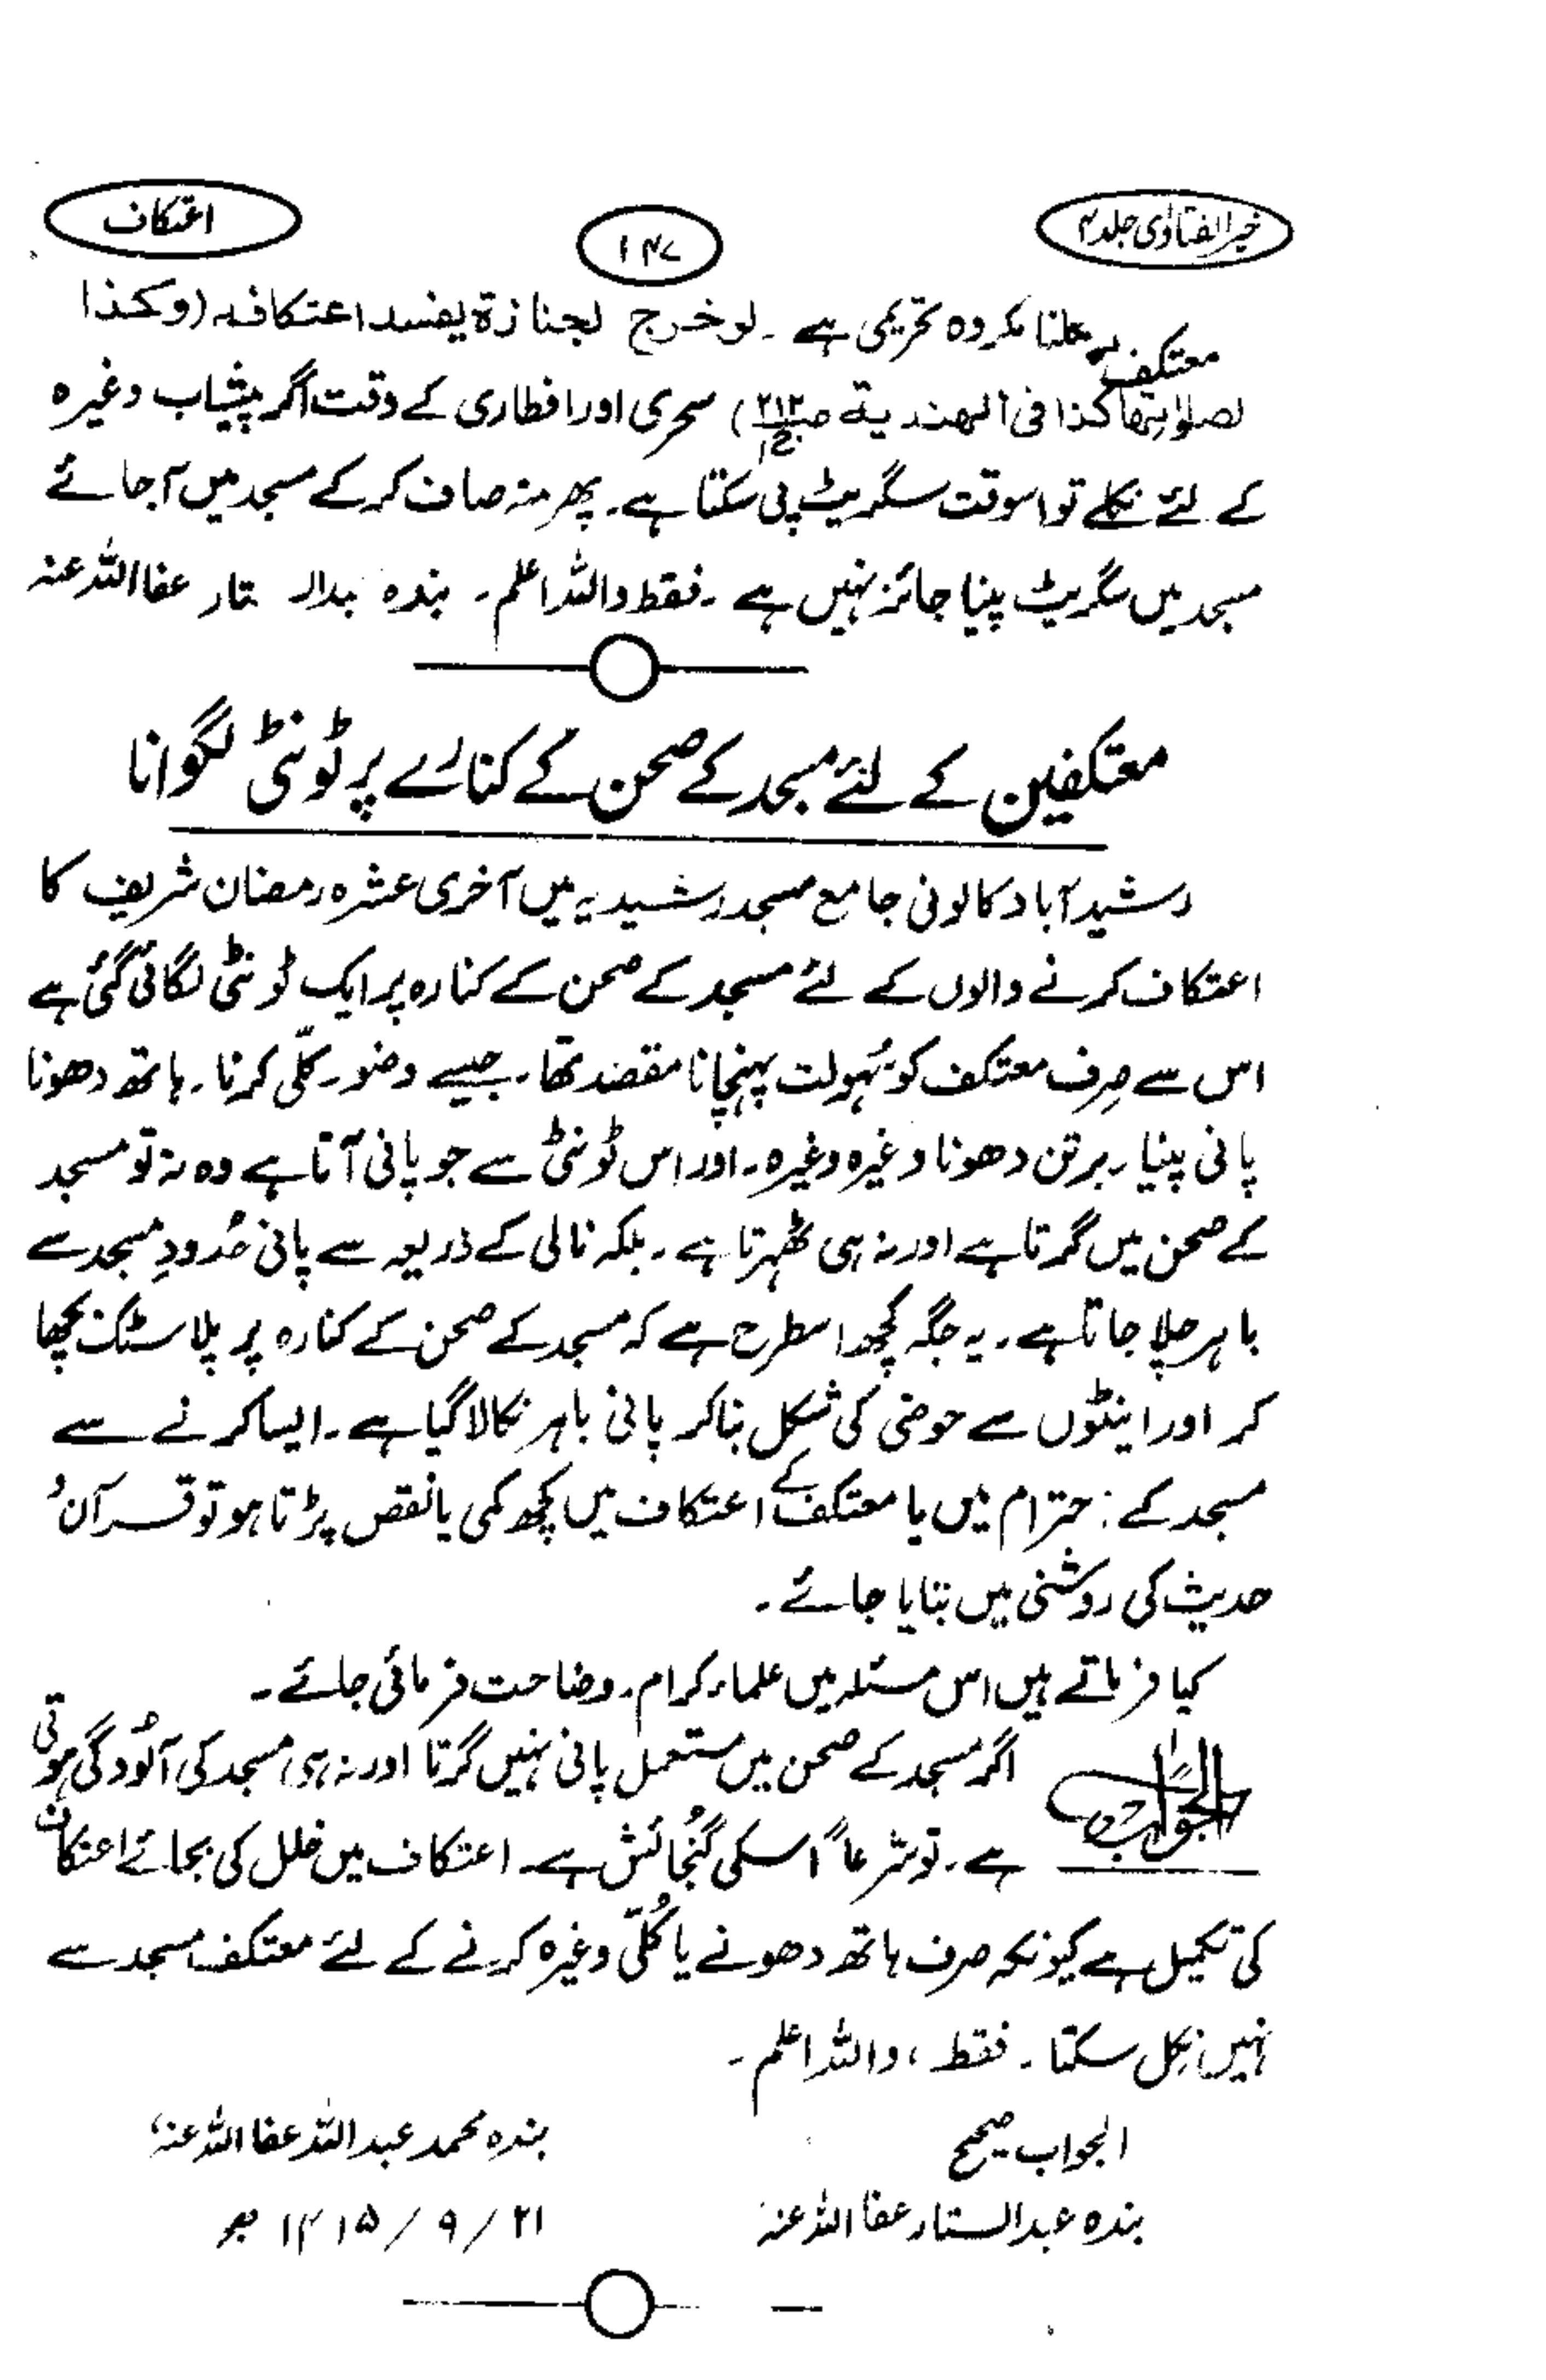 خیر الفتاوٰی جلد ۴
۱۴۷
اعتکاف
معتکف کو ملنا مکروہ تحریمی ہے ۔ لو خرج لجنازة یفسد اعتکافه (وکذا
لصلوٰتها کذا فی الهندية ص۲۱۲ ج۱) سحری اور افطاری کے وقت اگر پیشاب وغیرہ
کے لئے نکلے تو اسوقت سگریٹ پی سکتا ہے۔ پھر منہ صاف کر کے مسجد میں آجائے
مسجد میں سگریٹ پینا جائز نہیں ہے ۔ فقط واللہ اعلم ۔ بندہ عبدالستار عفا اللہ عنہ
معتکفین کے لئے مسجد کے صحن کے کنارے پر ٹونٹی لگوانا
رشید آباد کالونی جامع مسجد رشیدیہ میں آخری عشرہ رمضان شریف کا
اعتکاف کرنے والوں کے لئے مسجد کے صحن کے کنارہ پر ایک ٹونٹی لگائی گئی ہے
اس سے صِرف معتکف کو سُہولت پہنچانا مقصد تھا۔ جیسے وضو ۔ کلّی کرنا ۔ ہاتھ دھونا
پانی پینا ۔ برتن دھونا وغیرہ وغیرہ ۔ اور اس ٹونٹی سے جو پانی آتا ہے وہ نہ تو مسجد
کے صحن میں گرتا ہے اور نہ ہی ٹھہرتا ہے ۔ بلکہ نالی کے ذریعہ سے پانی حُدودِ مسجد سے
باہر چلا جاتا ہے ۔ یہ جگہ کچھ اسطرح ہے کہ مسجد کے صحن کے کنارہ پر پلاسٹک بچھا
کر اور اینٹوں سے حوضی کی شکل بنا کر پانی باہر نکالا گیا ہے ۔ ایسا کرنے سے
مسجد کے احترام میں یا معتکف کے اعتکاف میں کچھ کمی یا نقص پڑتا ہو تو قرآن و
حدیث کی روشنی میں بتایا جائے ۔
کیا فرماتے ہیں اس مسئلہ میں علماء کرام ۔ وضاحت فرمائی جائے ۔
الجواب اگر مسجد کے صحن میں مستعمل پانی نہیں گرتا اور نہ ہی مسجد کی آلُودگی ہوتی
ہے ۔ تو شرعاً اسکی گنجُائش ہے ۔ اعتکاف میں خلل کی بجائے اعتکاف
کی تکمیل ہے کیونکہ صرف ہاتھ دھونے یا کُلّی وغیرہ کرنے کے لئے معتکف مسجد سے
نہیں نکل سکتا ۔ فقط ، واللہ اعلم ۔
الجواب صحیح
بندہ محمد عبد اللہ عفا اللہ عنہ
بندہ عبد الستار عفا اللہ عنہ
۲۱ / ۹ / ۱۴۱۵ ھ